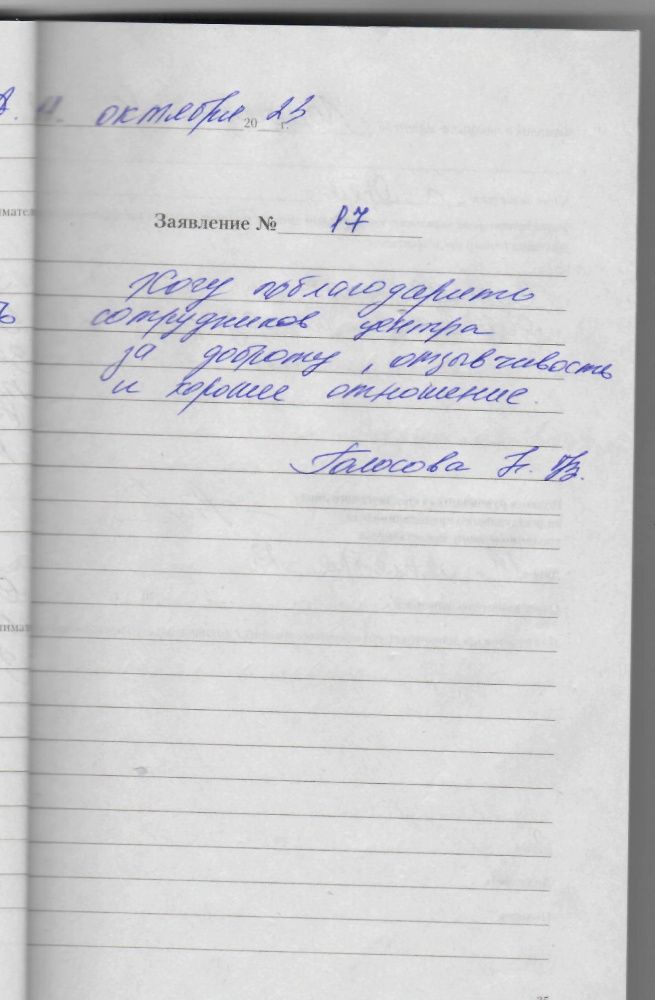 октября 2023 г.
Заявление № 17
Хочу поблагодарить
сотрудников центра
за доброту, отзывчивость
и хорошее отношение.
Голосова Н. В.
35